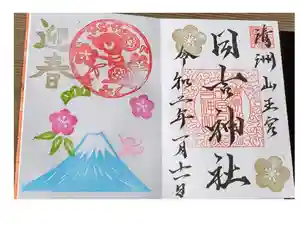 迎春
清洲山王宮
日吉神社
令和二年一月十一日